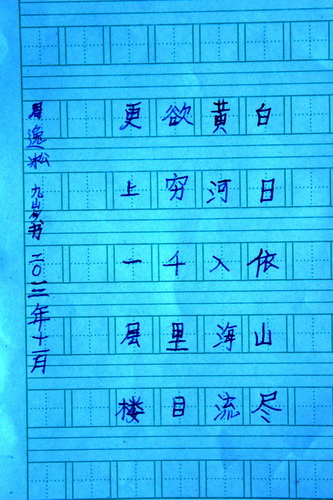 白日依山尽
黄河入海流
欲穷千里目
更上一层楼
周逸淞 九岁书 二〇一三年十一月